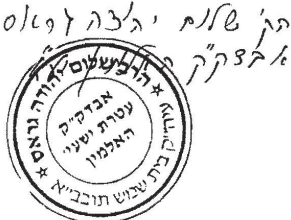 הק' שלום יהודה גראס
אבדק"ק
הרב שלום יהודה גראס
אבדק״ק
עטרת ישעי'
האלמין
בית שמש תובב״א